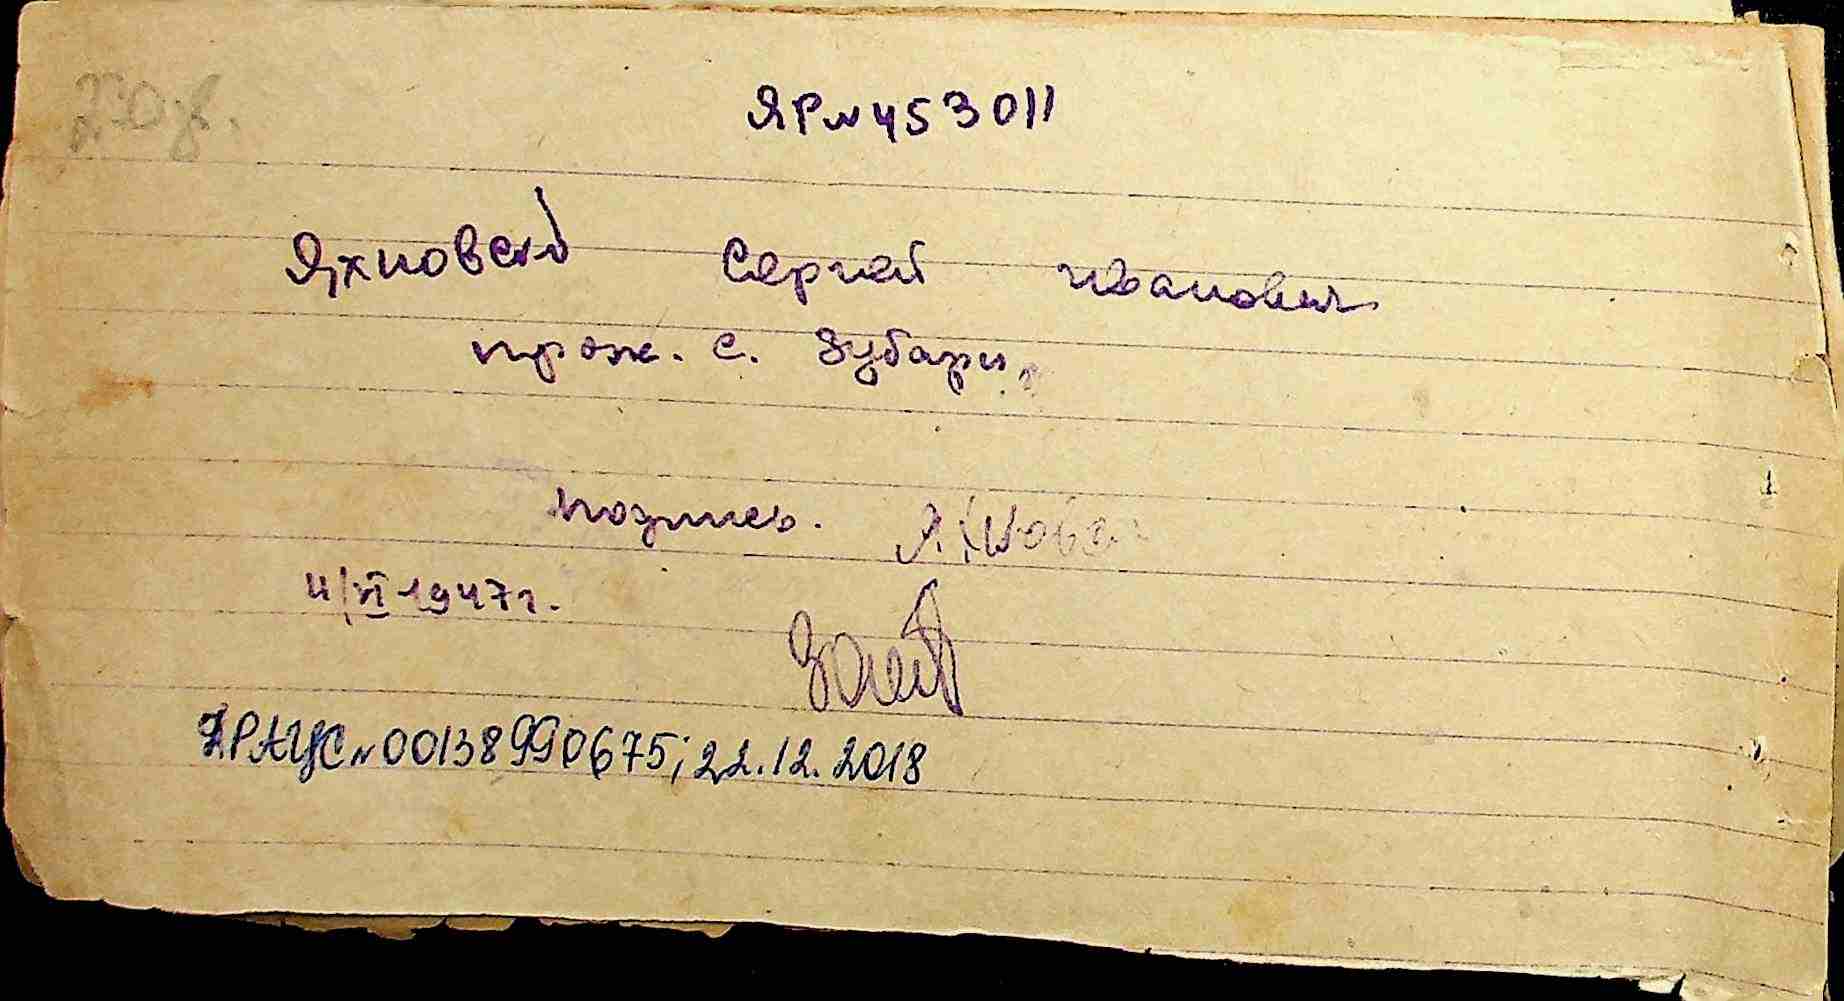 ЯР№453011
Яхновский Сергей Иванович
прож. с. Зубари,
подпись. Яхновс
4/XI 1947г.
ДРАЦС№00138990675; 22.12.2018